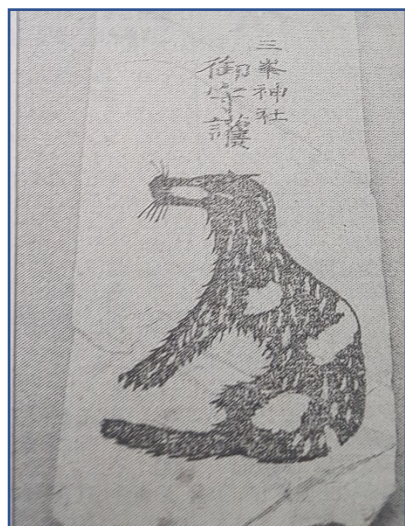 三峯神社
御守護